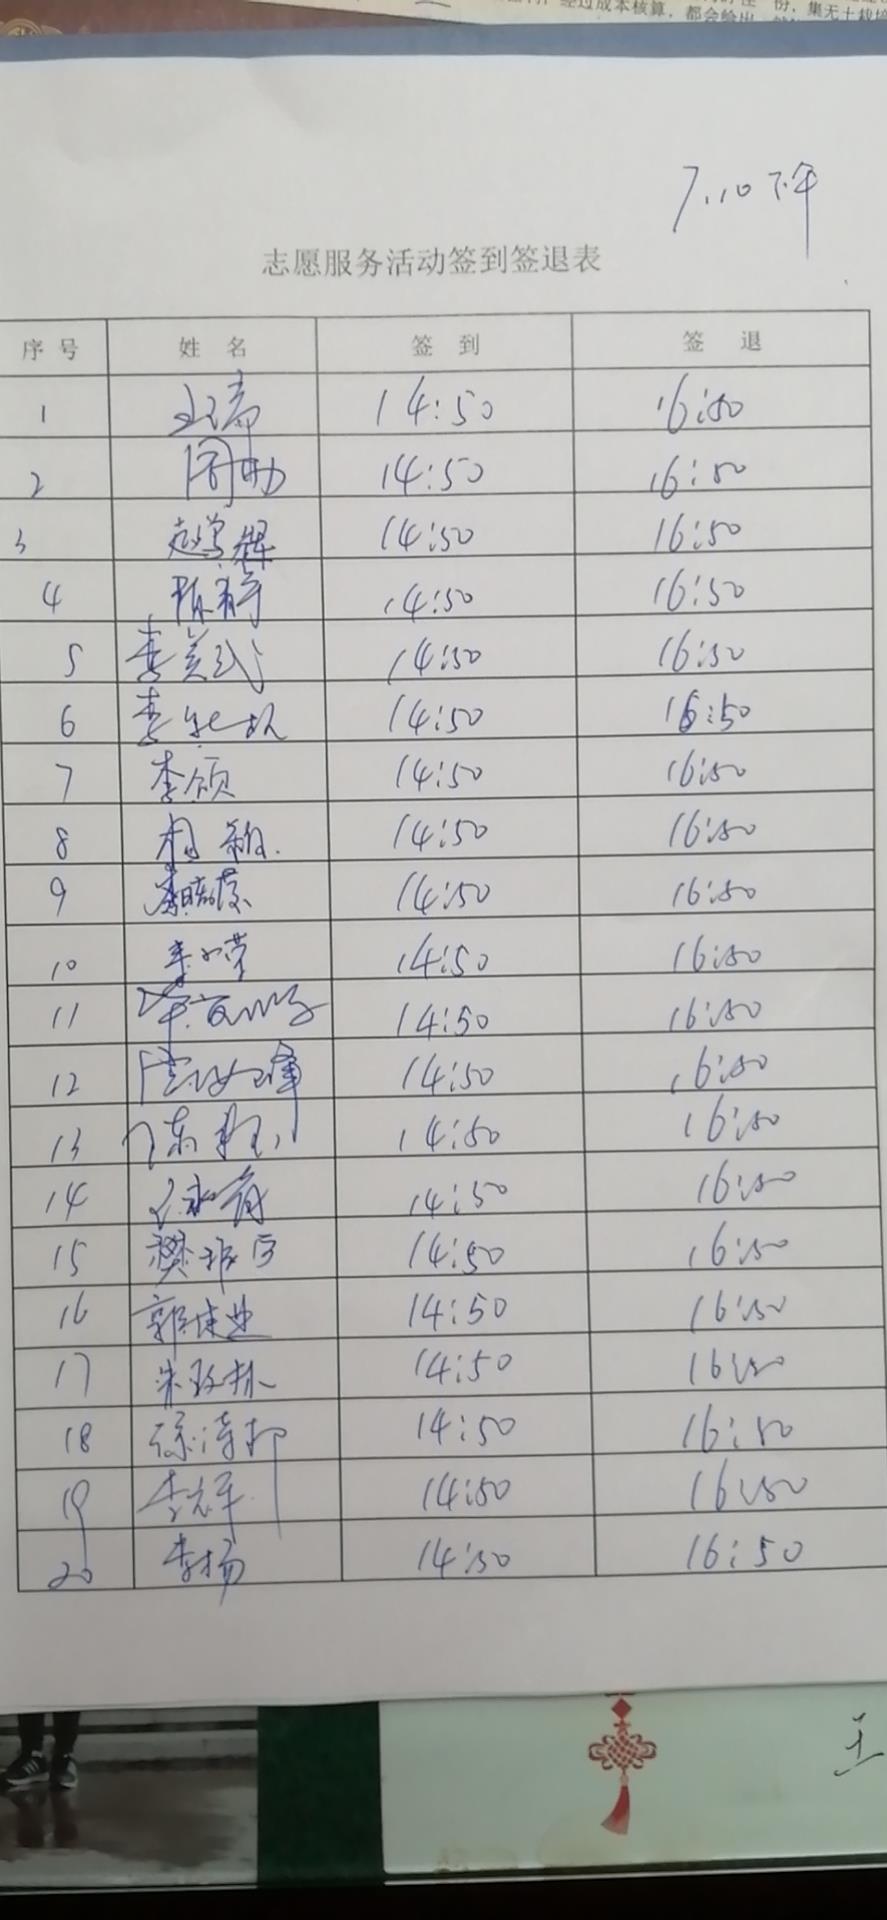 经过成本核算，都会给出
份，集无土栽培
7.10下午
志愿服务活动签到签退表
序号 姓名 签到 签退
1 王瑞 14:50 16:50
2 周勋 14:50 16:50
3 14:50 16:50
4 陈静 14:50 16:50
5 李美武 14:50 16:50
6 李 14:50 16:50
7 李颂 14:50 16:50
8 14:50 16:50
9 14:50 16:50
10 李小荣 14:50 16:50
11 14:50 16:50
12 14:50 16:50
13 陈 14:50 16:50
14 14:50 16:50
15 樊 14:50 16:50
16 郭佳进 14:50 16:50
17 朱玫林 14:50 16:50
18 徐涛 14:50 16:50
19 李军 14:50 16:50
20 李杨 14:50 16:50
王